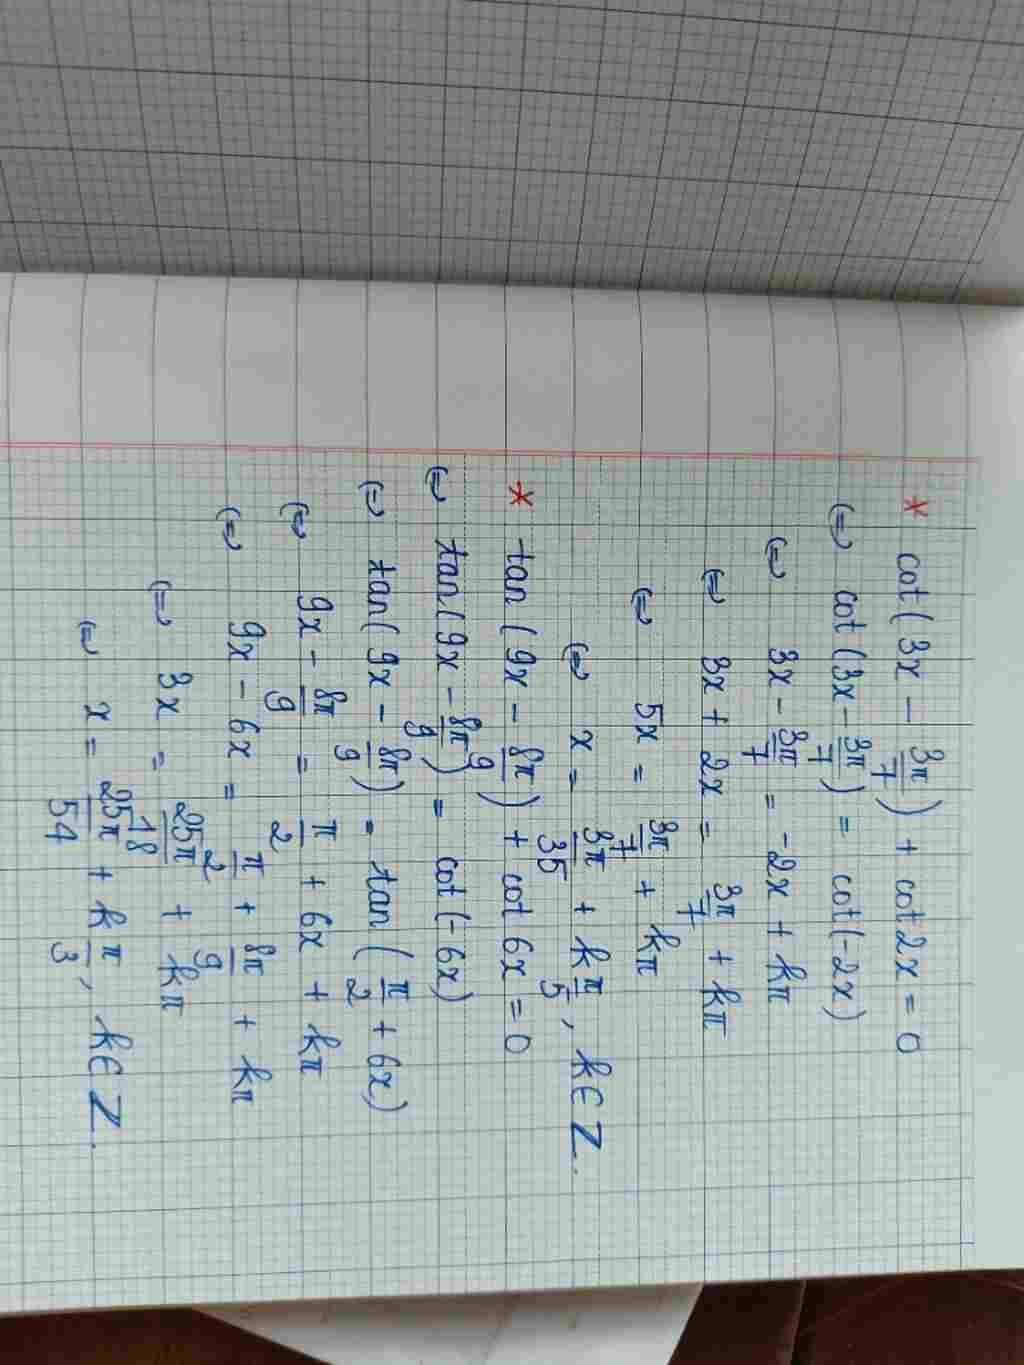 * cot(3x - 3π/7) + cot 2x = 0
(=) cot(3x - 3π/7) = cot(-2x)
(=) 3x - 3π/7 = -2x + kπ
(=) 3x + 2x = 3π/7 + kπ
(=) 5x = 3π/7 + kπ
(=) x = 3π/35 + k π/5, k∈Z.
* tan(9x - 8π/9) + cot 6x = 0
(=) tan(9x - 8π/9) = cot(-6x)
(=) tan(9x - 8π/9) = tan(π/2 + 6x)
(=) 9x - 8π/9 = π/2 + 6x + kπ
(=) 9x - 6x = π/2 + 8π/9 + kπ
(=) 3x = 25π/18 + kπ
(=) x = 25π/54 + k π/3, k∈Z.